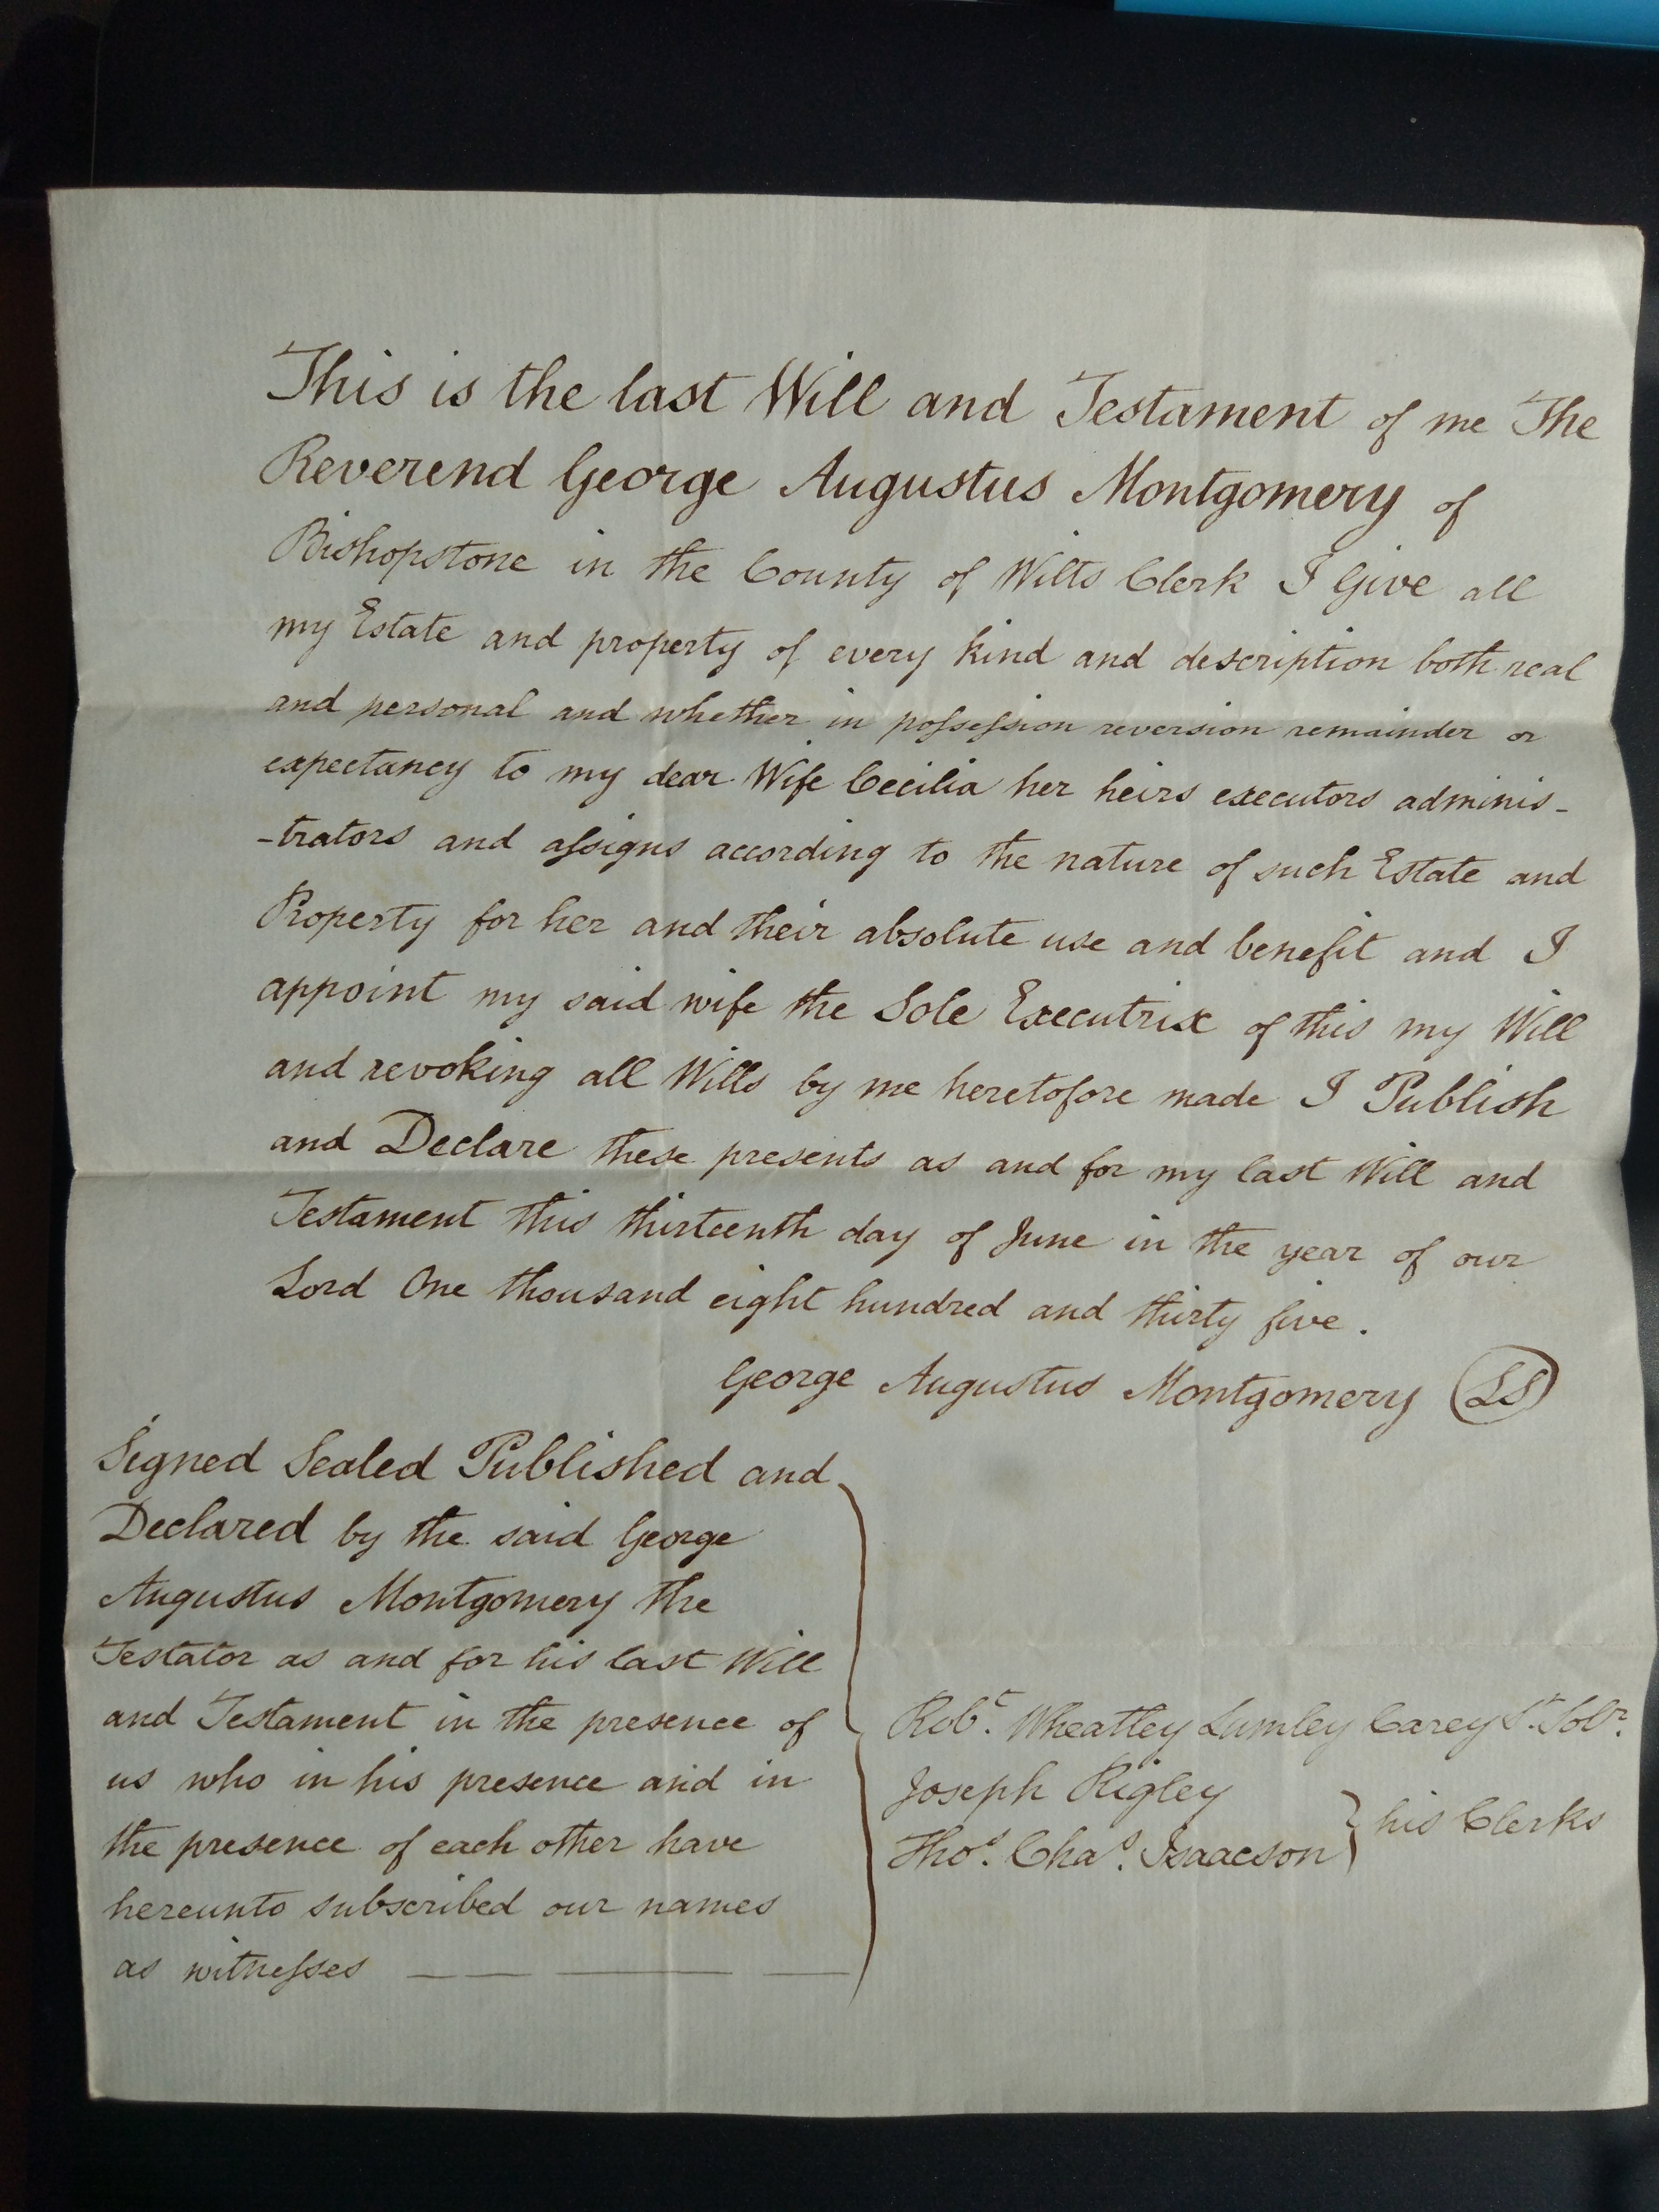 This is the last Will and Testament of me The
Reverend George Augustus Montgomery of
Bishopstone in the County of Wilts Clerk I Give all
my Estate and property of every kind and description both real
and personal and whether in poſseſsion reversion remainder or
expectancy to my dear Wife Cecilia her heirs executors adminis-
-trators and aſsigns according to the nature of such Estate and
Property for her and their absolute use and benefit and I
appoint my said wife the Sole Executrix of this my Will
and revoking all Wills by me heretofore made I Publish
and Declare these presents as and for my last Will and
Testament this thirteenth day of June in the year of our
Lord One thousand eight hundred and thirty five.
George Augustus Montgomery LS
Signed Sealed Published and
Declared by the said George
Augustus Montgomery the
Testator as and for his last Will
and Testament in the presence of
us who in his presence and in
the presence of each other have
hereunto subscribed our names
as witneſses
Robt. Wheatley Lumley Carey St. Solr.
Joseph Rigley
Thos. Chas. Isaacson
his Clerks